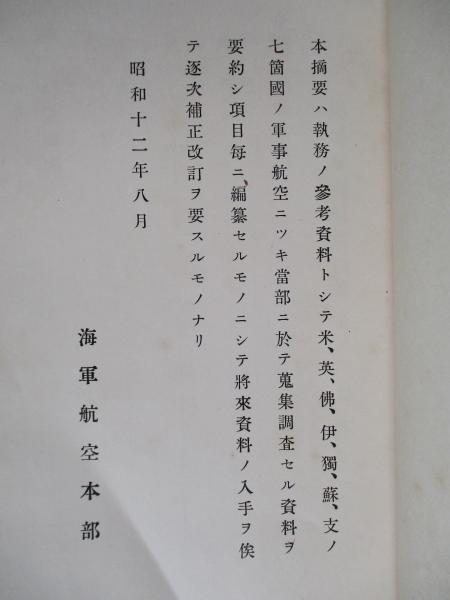 本摘要ハ執務ノ參考資料トシテ米、英、佛、伊、獨、蘇、支ノ
七箇國ノ軍事航空ニツキ當部ニ於テ蒐集調査セル資料ヲ
要約シ項目每ニ、編纂セルモノニシテ將來資料ノ入手ヲ俟
テ逐次補正改訂ヲ要スルモノナリ
昭和十二年八月
海軍航空本部